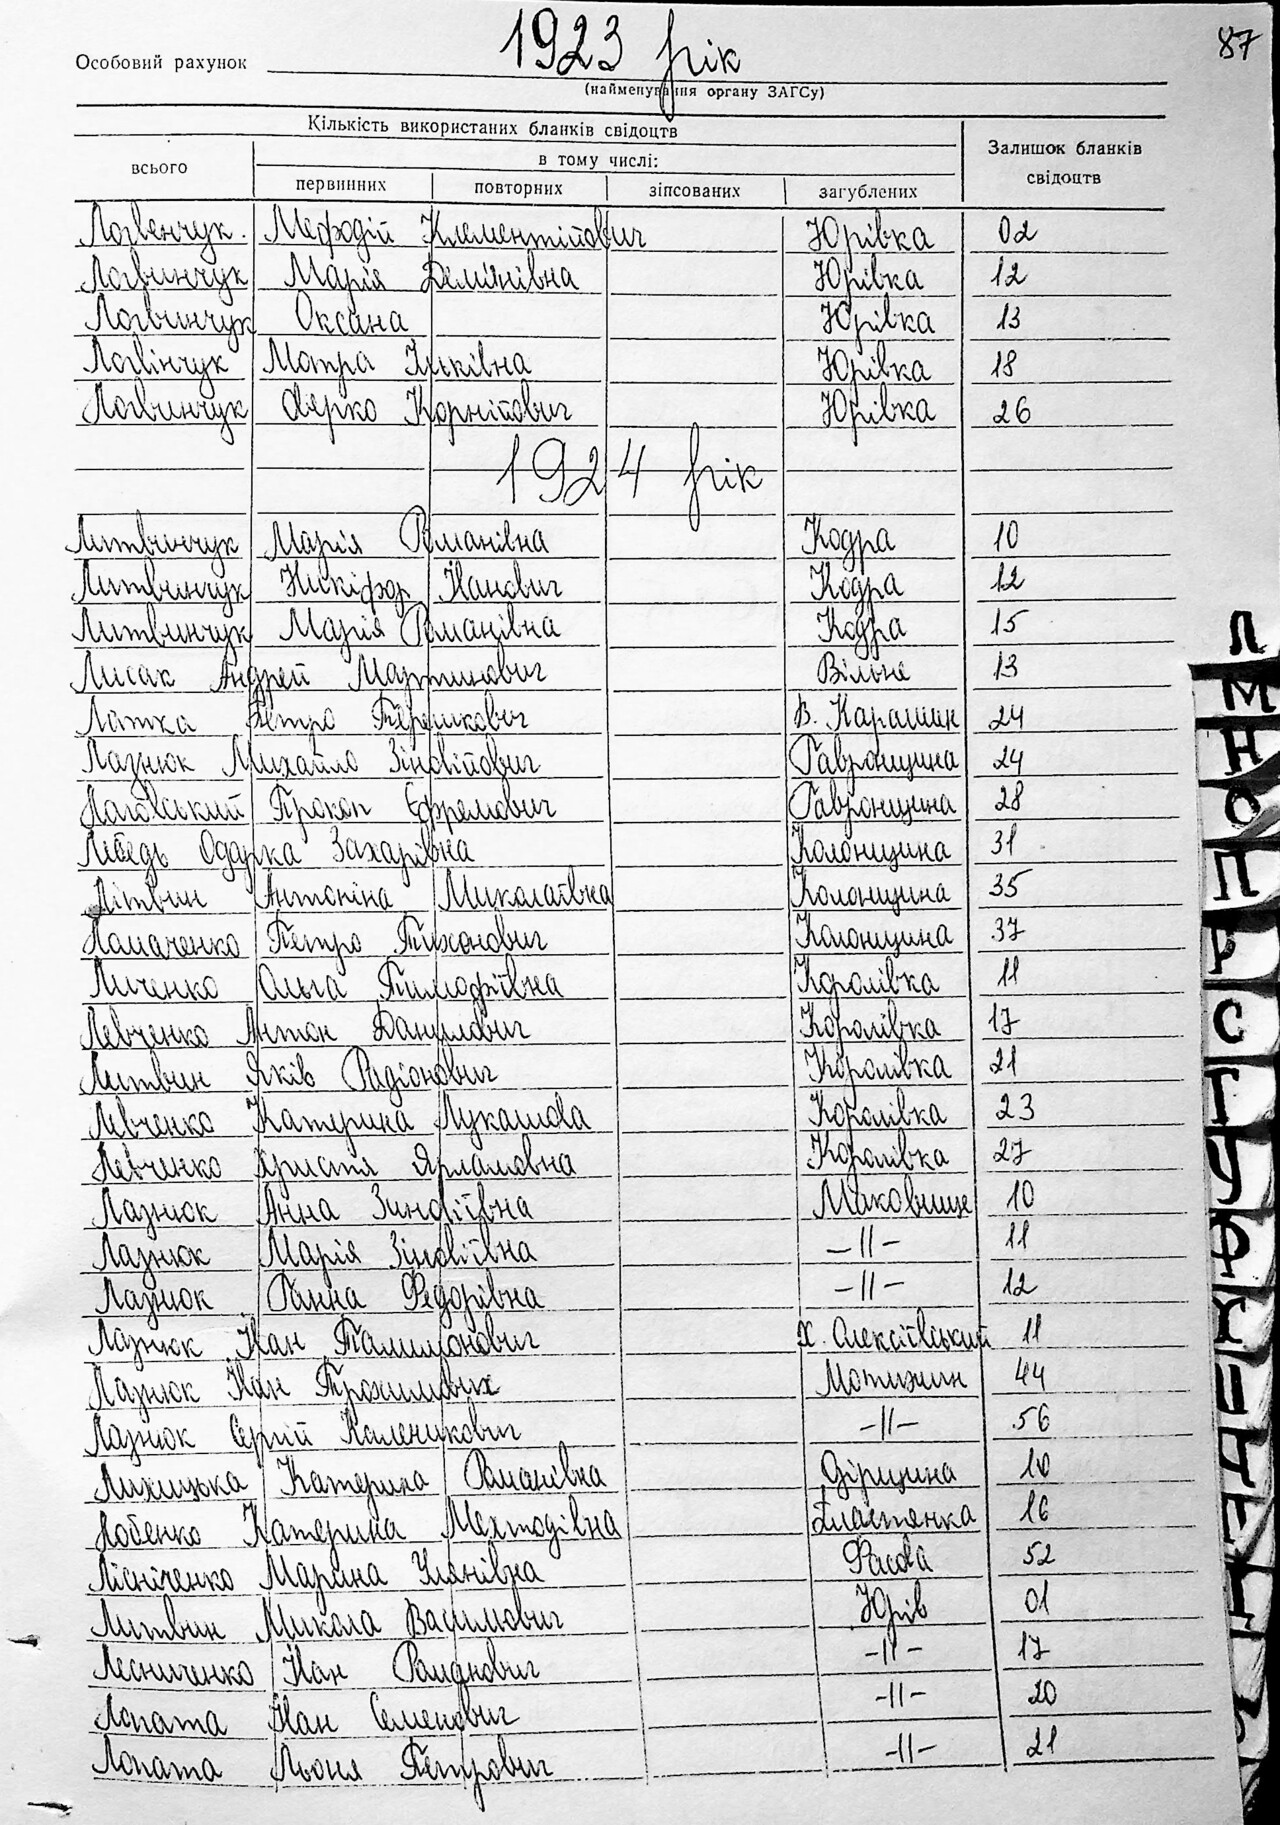 87
1923 рік
Особовий рахунок
(найменування органу ЗАГСу)
Кількість використаних бланків свідоцтв
Залишок бланків свідоцтв
всього
в тому числі:
первинних повторних зіпсованих загублених
Логвенчук Мефодій Клементійович Юрівка 02
Логвинчук Марія Демянівна Юрівка 12
Логвинчук Оксана Юрівка 13
Логвінчук Мотра Ільківна Юрівка 18
Логвинчук Ферко Корнійович Юрівка 26
1924 рік
Литвинчук Марія Романівна Кодра 10
Литвинчук Никіфор Іванович Кодра 12
Литвинчук Марія Романівна Кодра 15
Лисак Андрей Мартинович Вільне 13
Латка Петро Терешкович В. Карашин 24
Лазнюк Михайло Зіновійович Гавронщина 24
Лаговський Прокоп Ефремович Гавронщина 28
Лебедь Одарка Захарівна Колонщина 31
Літвин Антоніна Миколаївна Колонщина 35
Ломаченко Петро Тихонович Колонщина 37
Личенко Ольга Тимофіївна Королівка 11
Левченко Антон Данилович Королівка 17
Литвин Яків Радіонович Королівка 21
Левченко Катерина Лукашова Королівка 23
Левченко Христя Ярламовна Королівка 27
Лазнюк Анна Зиновіївна Маковище 10
Лазнюк Марія Зіновіївна -||- 11
Лазнюк Ганна Федорівна -||- 12
Лазнюк Іван Талимонович х. Олексіївський 11
Лазнюк Іван Трохимович Мотижин 44
Лазнюк Сергій Каленикович -||- 56
Лихицька Катерина Романівна Фірщина 10
Лобенко Катерина Мехтодівна Пластенка 16
Лісніченко Марина Улянівна Фасова 52
Литвин Микола Васильович Юрів 01
Лесниченко Іван Романович -||- 17
Лопата Іван Семенович -||- 20
Лопата Льоня Петрович -||- 21
Л
М
Н
О
П
Р
С
Т
У
Ф
Х